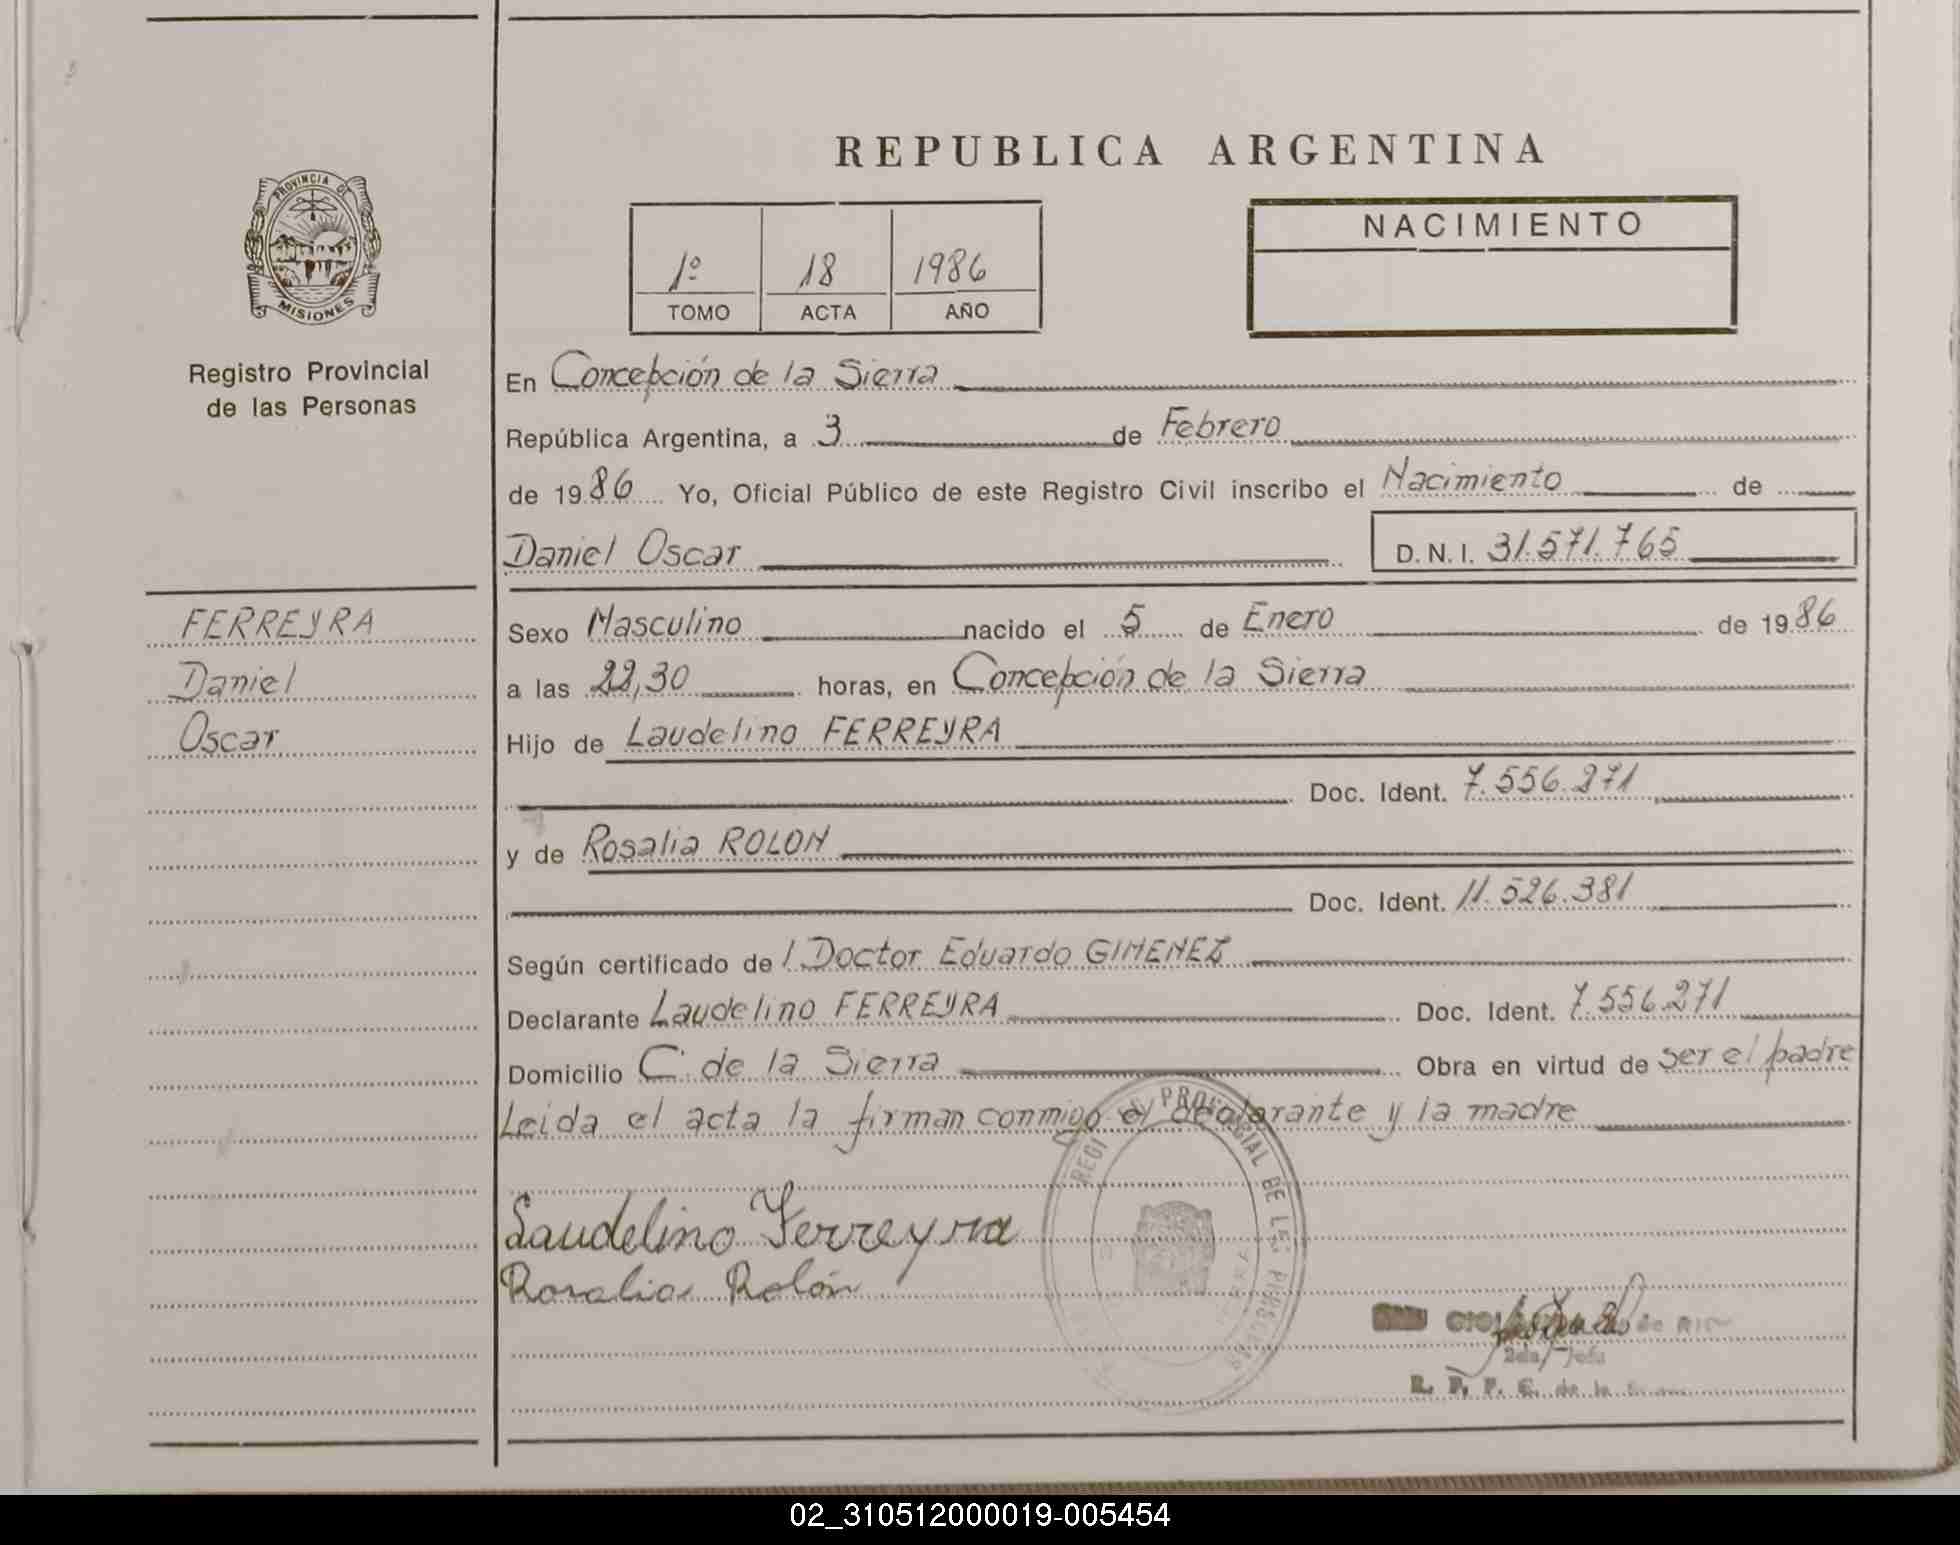 REPUBLICA ARGENTINA
PROVINCIA DE
MISIONES
Registro Provincial
de las Personas
1º 18 1986
TOMO ACTA AÑO
NACIMIENTO
En Concepción de la Sierra
República Argentina, a 3 de Febrero
de 1986 Yo, Oficial Público de este Registro Civil inscribo el Nacimiento de
Daniel Oscar D.N.I. 31.571.765
FERREYRA
Daniel
Oscar
Sexo Masculino nacido el 5 de Enero de 1986
a las 22,30 horas, en Concepción de la Sierra
Hijo de Laudelino FERREYRA
Doc. Ident. 7.556.271
y de Rosalia ROLON
Doc. Ident. 11.526.381
Según certificado de l Doctor Eduardo GIMENEZ
Declarante Laudelino FERREYRA Doc. Ident. 7.556.271
Domicilio C. de la Sierra Obra en virtud de ser el padre
Leida el acta la firman conmigo el declarante y la madre
Laudelino Ferreyra
Rosalia Rolón
02_310512000019-005454